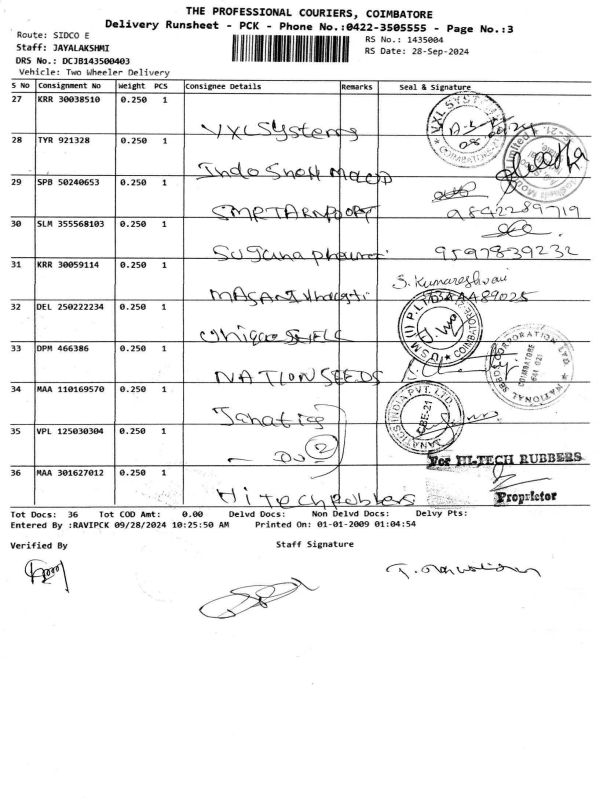 THE PROFESSIONAL COURIERS, COIMBATORE
Delivery Runsheet - PCK - Phone No.:0422-3505555 - Page No.:3
Route: SIDCO E
RS No.: 1435004
Staff: JAYALAKSHMI
RS Date: 28-Sep-2024
DRS No.: DCJB143500403
Vehicle: Two Wheeler Delivery
S No Consignment No Weight PCS Consignee Details Remarks Seal & Signature
27 KRR 30038510 0.250 1 VXL Systems
28 TYR 921328 0.250 1 Indo Shell
29 SPB 50240653 0.250 1 9842289719
30 SLM 355568103 0.250 1 Suguna 9597839232
31 KRR 30059114 0.250 1 S. Kumareshwari
32 DEL 250222234 0.250 1
33 DPM 466386 0.250 1 NATION SEEDS
34 MAA 110169570 0.250 1
35 VPL 125030304 0.250 1 - Do 2
For HI-TECH RUBBERS
36 MAA 301627012 0.250 1 Hitech rubbers
Proprietor
Tot Docs: 36 Tot COD Amt: 0.00 Delvd Docs: Non Delvd Docs: Delvy Pts:
Entered By :RAVIPCK 09/28/2024 10:25:50 AM Printed On: 01-01-2009 01:04:54
Verified By Staff Signature